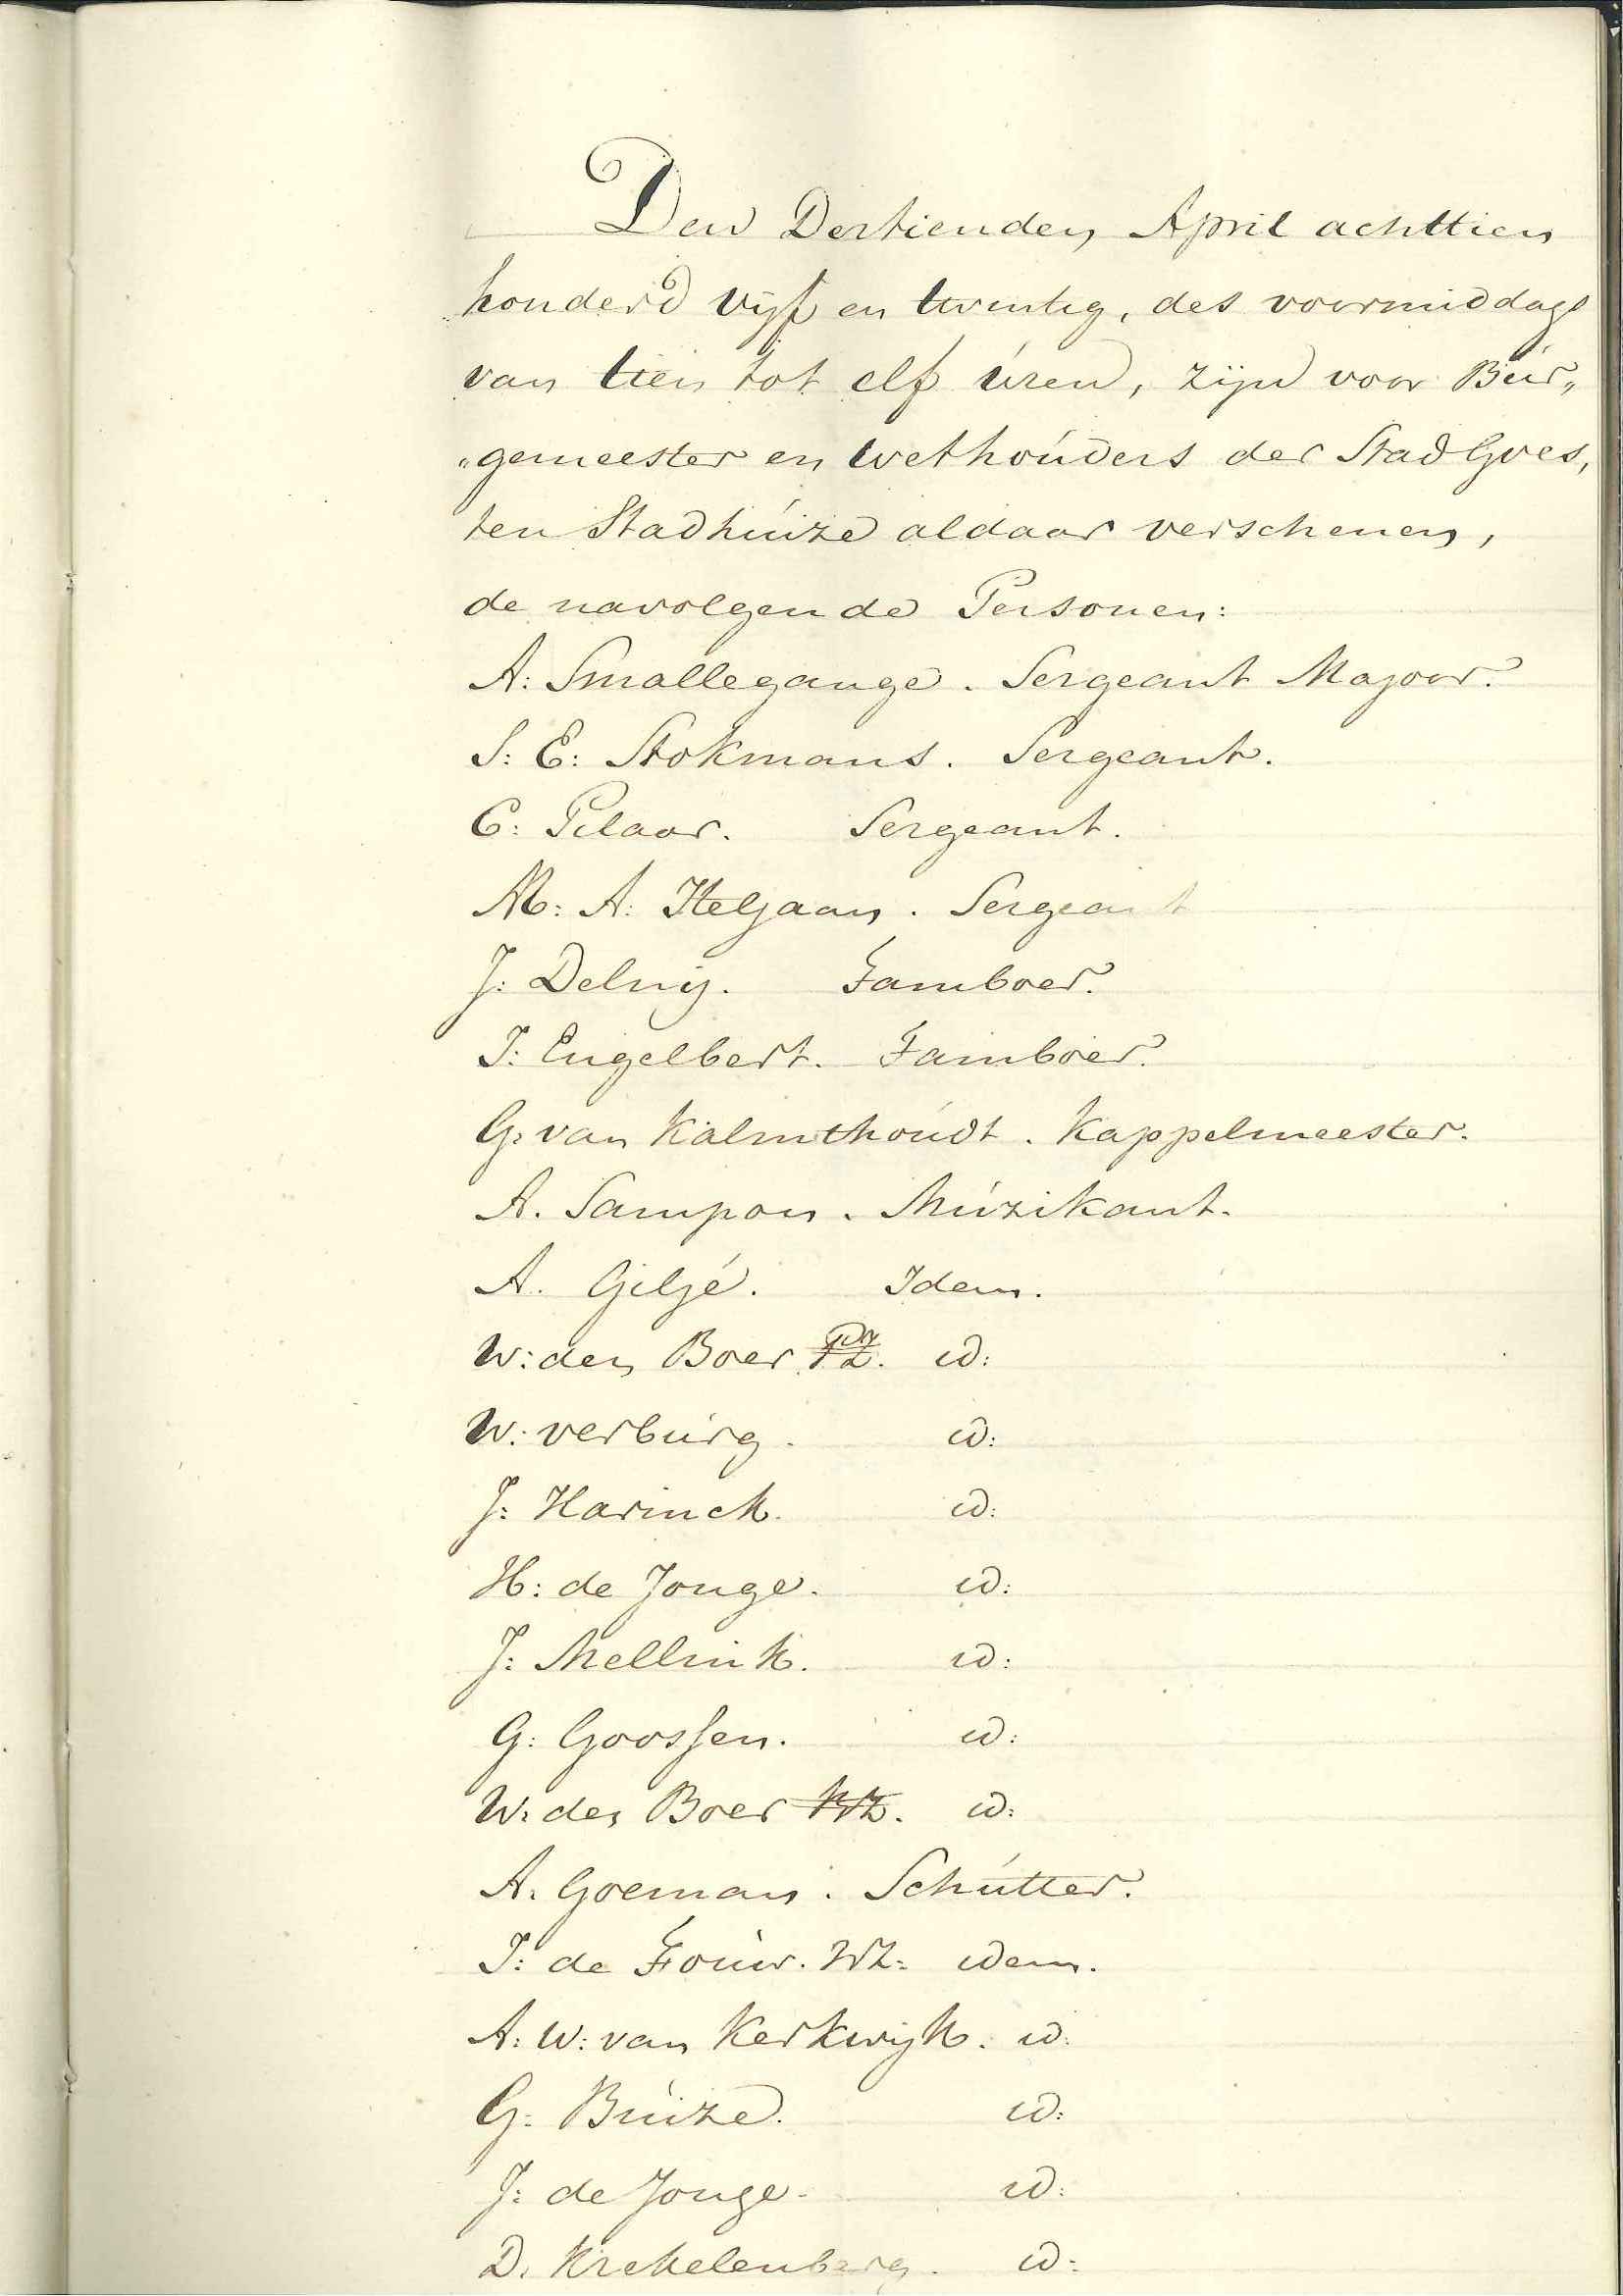 Den Dertienden April achttien
honderd vijf en twintig, des voormiddags
van tien tot elf úren, zijn voor Búr„
„gemeester en wethoúders der Stad Goes,
ten Stadhúize aldaar verschenen,
de navolgende Personen:
A: Smallegange. Sergeant Majoor.
S: E: Stokmans. Sergeant.
C: Pilaar. Sergeant.
M: A: Iteljaan. Sergeant
J: Delnij. Tamboer.
I: Engelbert. Tamboer.
G: van Kalmthoúdt. Kappelmeester.
A. Sampon. Múzikant.
A. Giljé. Idem.
W: den Boer Pz. id:
W: verbúrg. id:
J: Harinck. id:
H: de Jonge. id:
J: Mellink. id:
G: Goossen. id:
W: den Boer Wz. id:
A. Goeman. Schútter.
I: de Foúw. Wz: idem.
A: W: van Kerkwijk. id:
G: Búize. id:
J: de Jonge. id:
D. Krekelenberg. id: